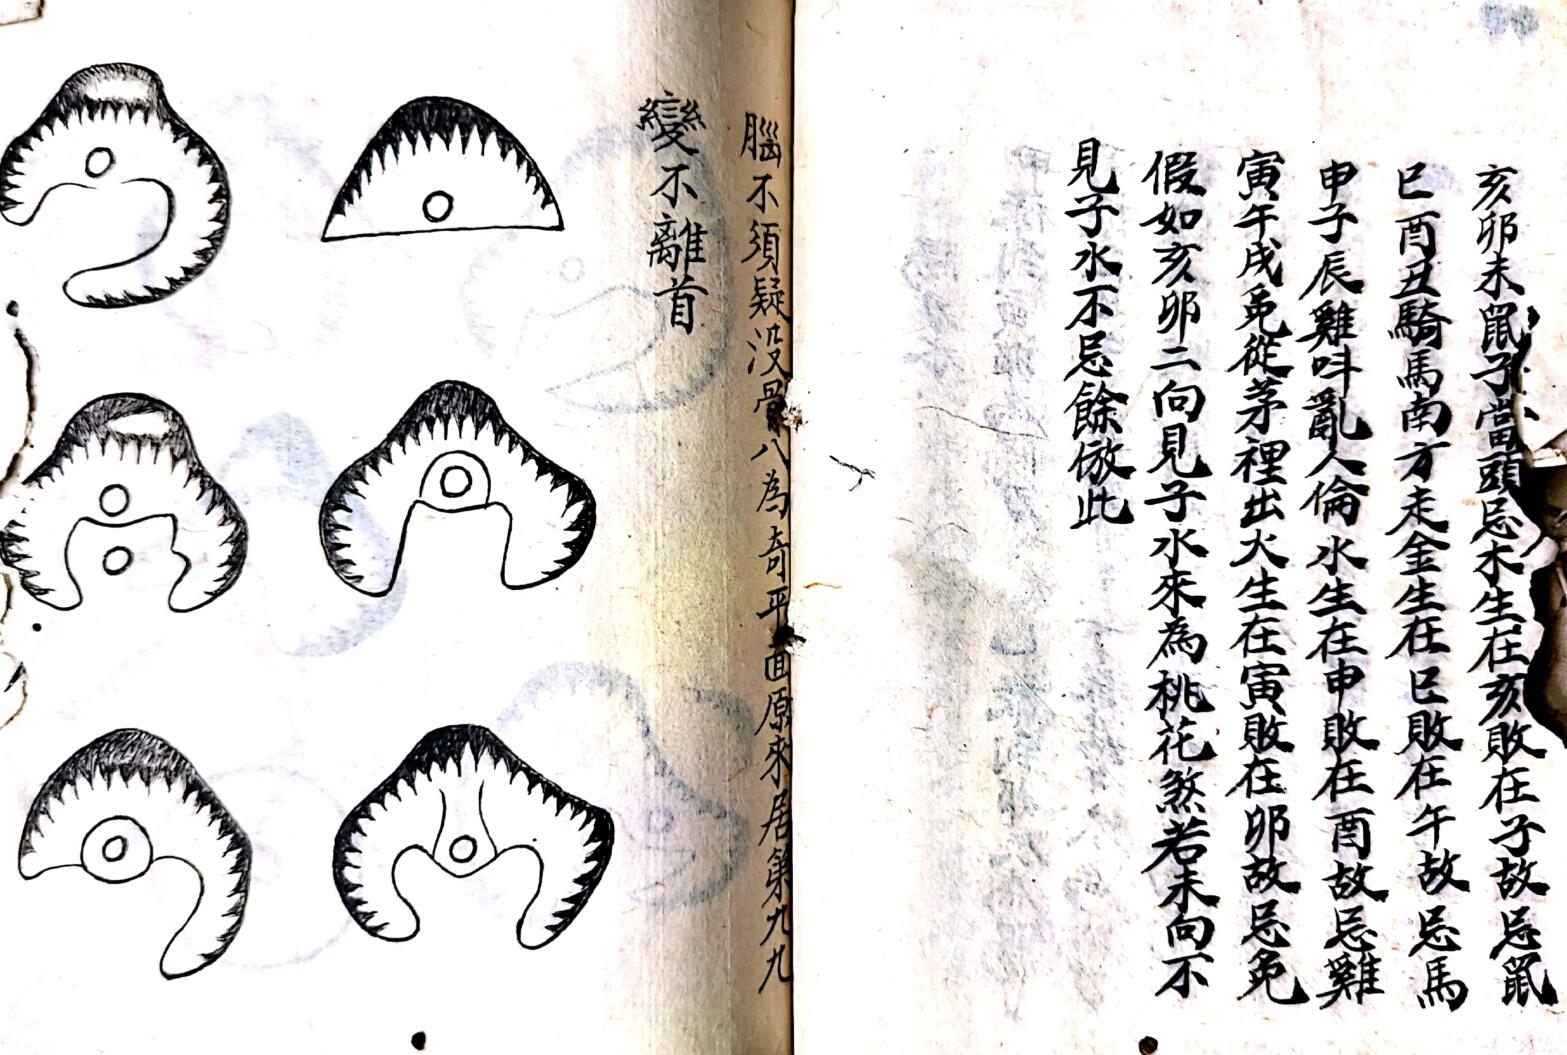 亥卯未鼠子當頭忌木生在亥敗在子故忌鼠
巳酉丑騎馬南方走金生在巳敗在午故忌馬
申子辰雞呌亂人倫水生在申敗在酉故忌雞
寅午戌兎從茅裡出火生在寅敗在卯故忌兎
假如亥卯二向見子水來為桃花煞若未向不
見子水不忌餘倣此
腦不須疑没骨八為奇平面原來居第九九
變不離首